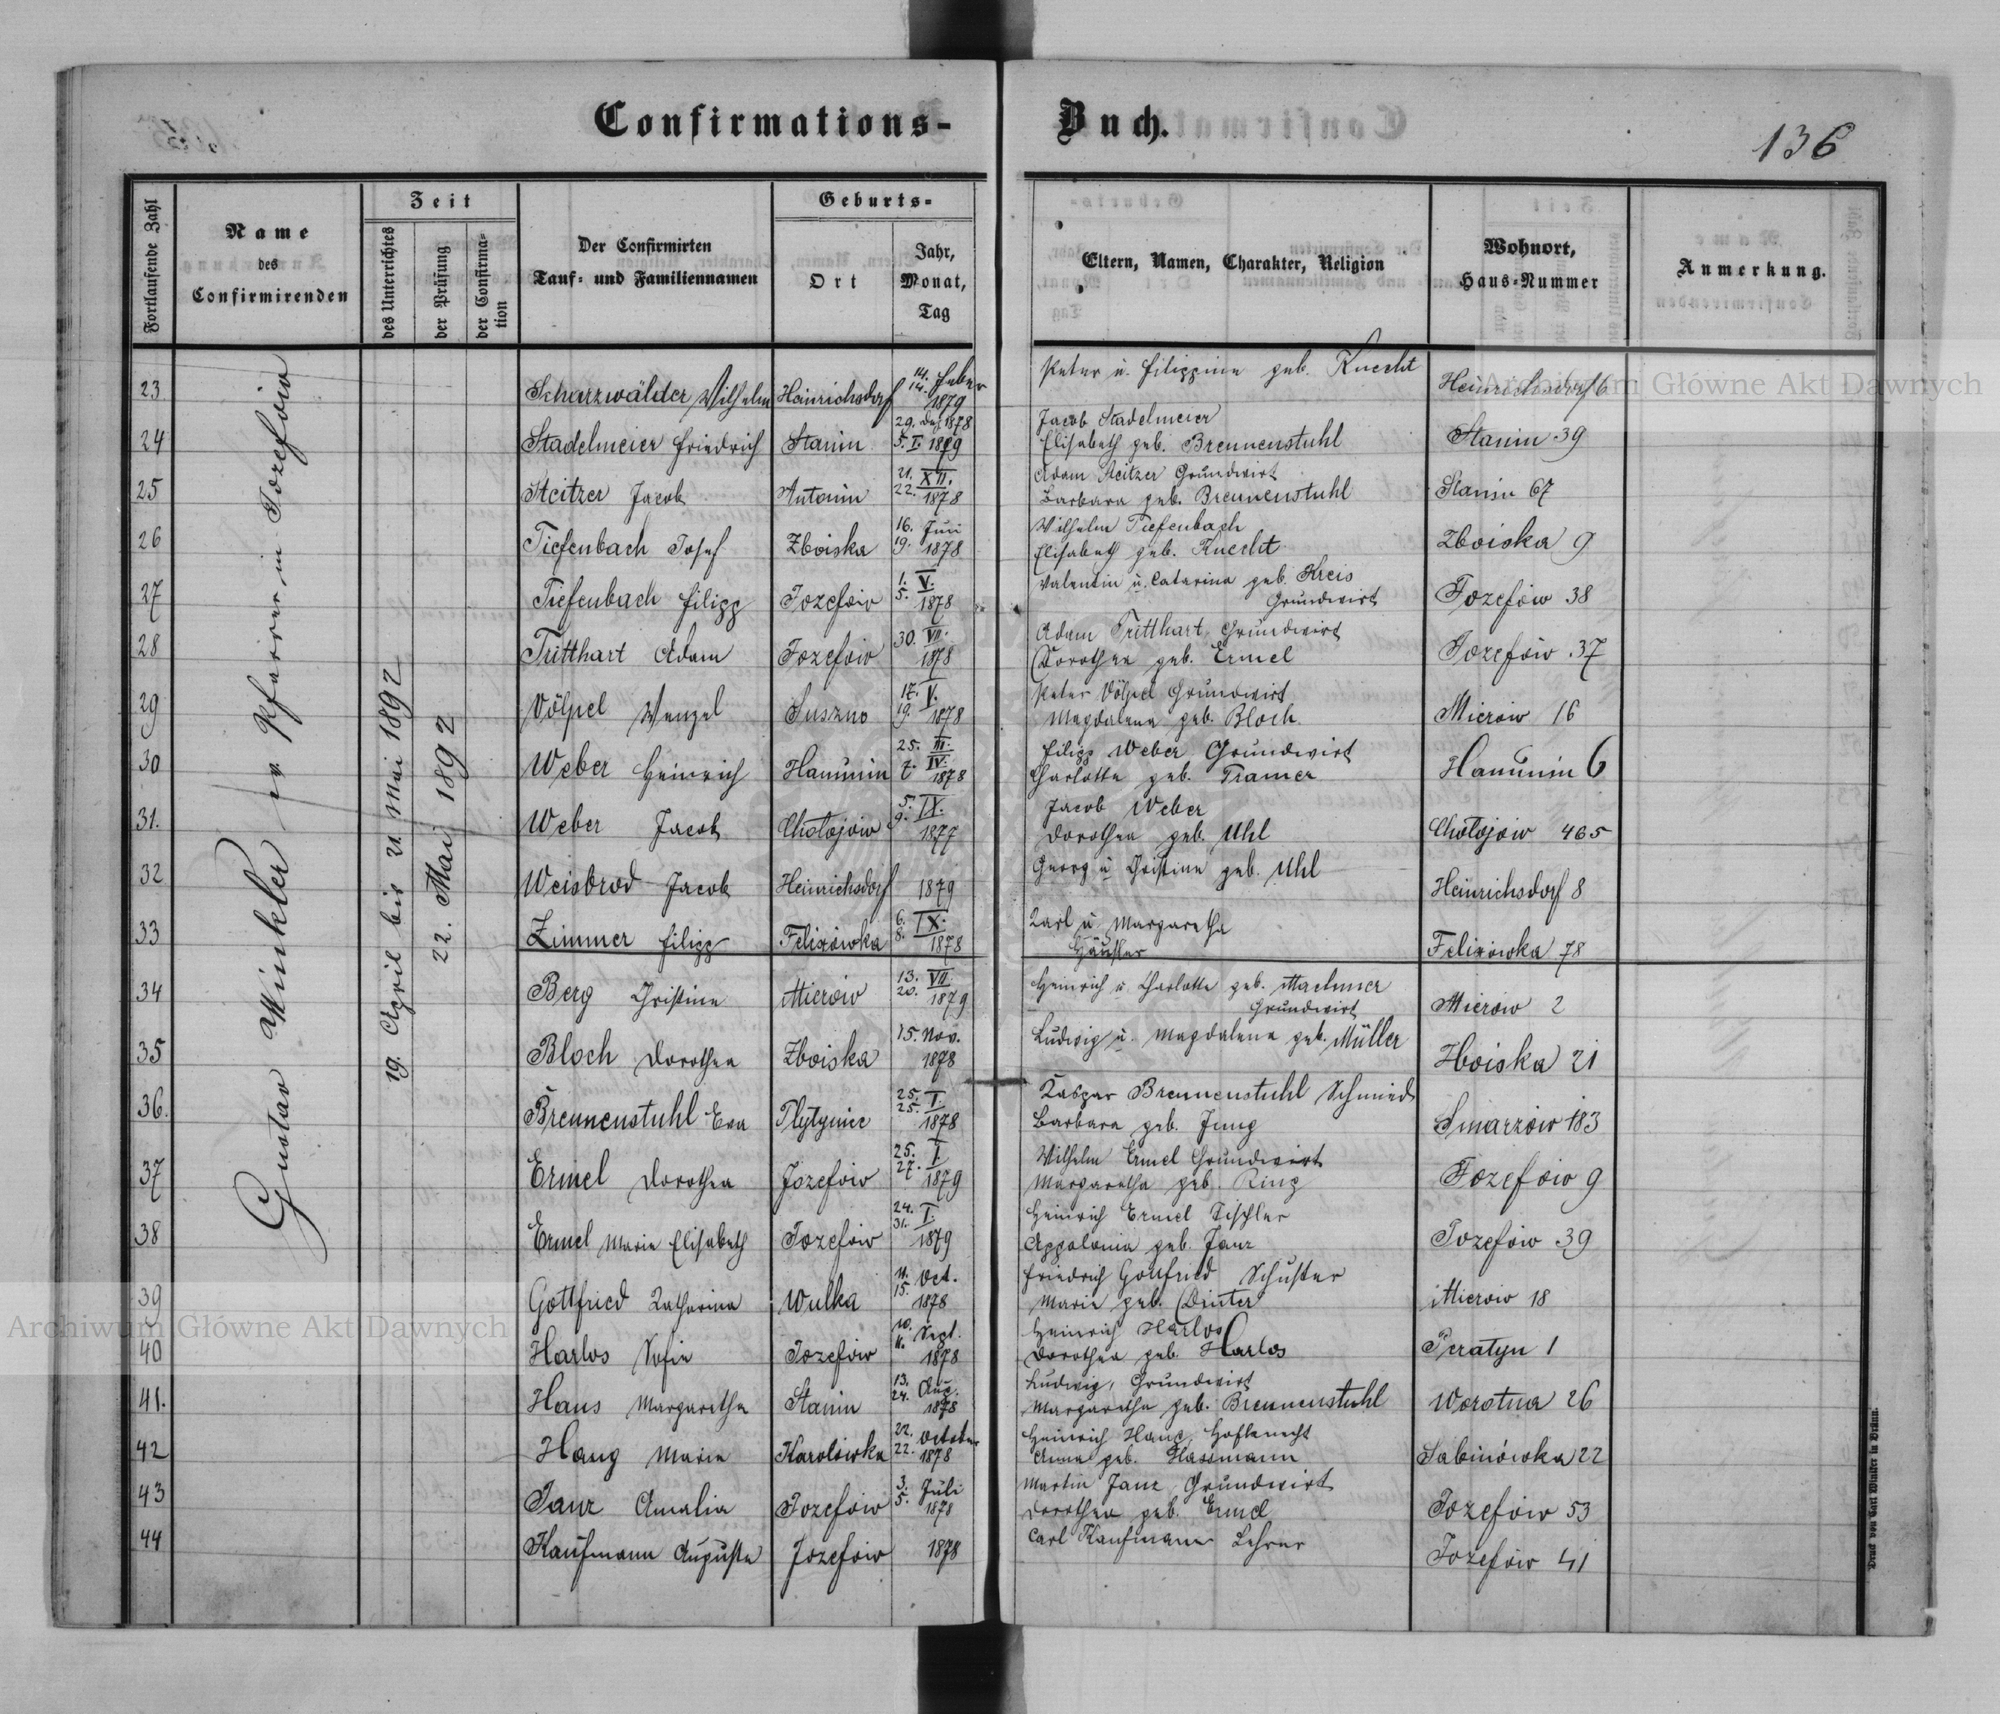 Confirmations-Buch.
136
Fortlaufende Zahl
Name des Confirmirenden
Zeit
des Unterrichtes
der Prüfung
der Confirmation
Der Confirmirten Tauf- und Familiennamen
Geburts-
Ort
Jahr, Monat, Tag
Eltern, Namen, Charakter, Religion
Wohnort, Haus-Nummer
Anmerkung.
Gustav Winkler ev. Pfarrer in Józefów
19 April bis 21 Mai 1892
22. Mai 1892
23 Scharzwälder Wilhelm Heinrichsdorf 14. 14. Feber 1879 Peter u. Filippine geb. Knecht Heinrichsdorf 6
24 Stadelmeier Friedrich Stanin 29. Dez 1878 5. I 1879 Jacob Stadelmeier
Elisabeth geb. Brennenstuhl Stanin 39
25 Steitzer Jacob Antonin 21. 22. XII. 1878 Adam Steitzer Grundwirt
Barbara geb. Brennenstuhl Stanin 67
26 Tiefenbach Josef Zboiska 16. 19. Juni 1878 Wilhelm Tiefenbach
Elisabeth geb. Knecht Zboiska 9
27 Tiefenbach Filipp Józefów 1. 5. V. 1878 Valentin u. Catarina geb. Kreis
Grundwirt Józefów 38
28 Tritthart Adam Józefów 30. VII. 1878 Adam Tritthart, Grundwirt
Dorothea geb. Ermel Józefów 37
29 Völpel Wenzel Suszno 17. 19. V. 1878 Peter Völpel Grundwirt
Magdalena geb. Bloch Mierów 16
30 Weber Heinrich Hanunin 25. III. 7. IV. 1878 Filipp Weber Grundwirt
Charlotte geb. Tramer Hanunin 6
31. Weber Jacob Chołojów 5. 9. IX. 1877 Jacob Weber
Dorothea geb. Uhl Chołojów 465
32 Weisbrod Jacob Heinrichsdorf 1879 Georg u Christine geb. Uhl Heinrichsdorf 8
33 Zimmer Filipp Felixówka 6. 8. IX. 1878 Karl u. Margaretha
Felixówka 78
34 Berg Christine Mierów 13. 20. VII. 1879 Heinrich u. Charlotte geb. Machmer
Grundwirt Mierów 2
35 Bloch Dorothea Zboiska 15. Nov. 1878 Ludwig u. Magdalena geb. Müller Zboiska 21
36. Brennenstuhl Eva 25. 25. I. 1878 Kaspar Brennenstuhl Schmied
Barbara geb. Jung Smarzów 183
37 Ermel Dorothea Józefów 25. 27. I. 1879 Wilhelm Ermel Grundwirt
Margaretha geb. Ring Józefów 9
38 Ermel Marie Elisabeth Józefów 24. 31. I. 1879 Heinrich Ermel Tischler
Appolonia geb. Janz Józefów 39
39 Gottfried Katharina Wulka 11. 15. Oct. 1878 Friedrich Gottfried Schuster
Marie geb. Dinter Mierów 18
40 Harlos Sofie Józefów 10. 11. Sept. 1878 Heinrich Harlos
Dorothea geb. Harlos Peratyn 1
41. Haus Margaretha Stanin 13. 24. Aug. 1878 Ludwig, Grundwirt
Margaretha geb. Brennenstuhl 26
42 Haug Marie Karolówka 22. 22. October 1878 Heinrich Haug, Hofknecht
Anna geb. Hassmann Sabinówka 22
43 Janz Amalia Józefów 3. 5. Juli 1878 Martin Janz, Grundwirt
Dorothea geb. Ermel Józefów 53
44 Kaufmann Auguste Józefów 1878 Carl Kaufmann Lehrer Józefów 41
Druck von Carl Winiker in Brünn.
Archiwum Główne Akt Dawnych
Archiwum Główne Akt Dawnych